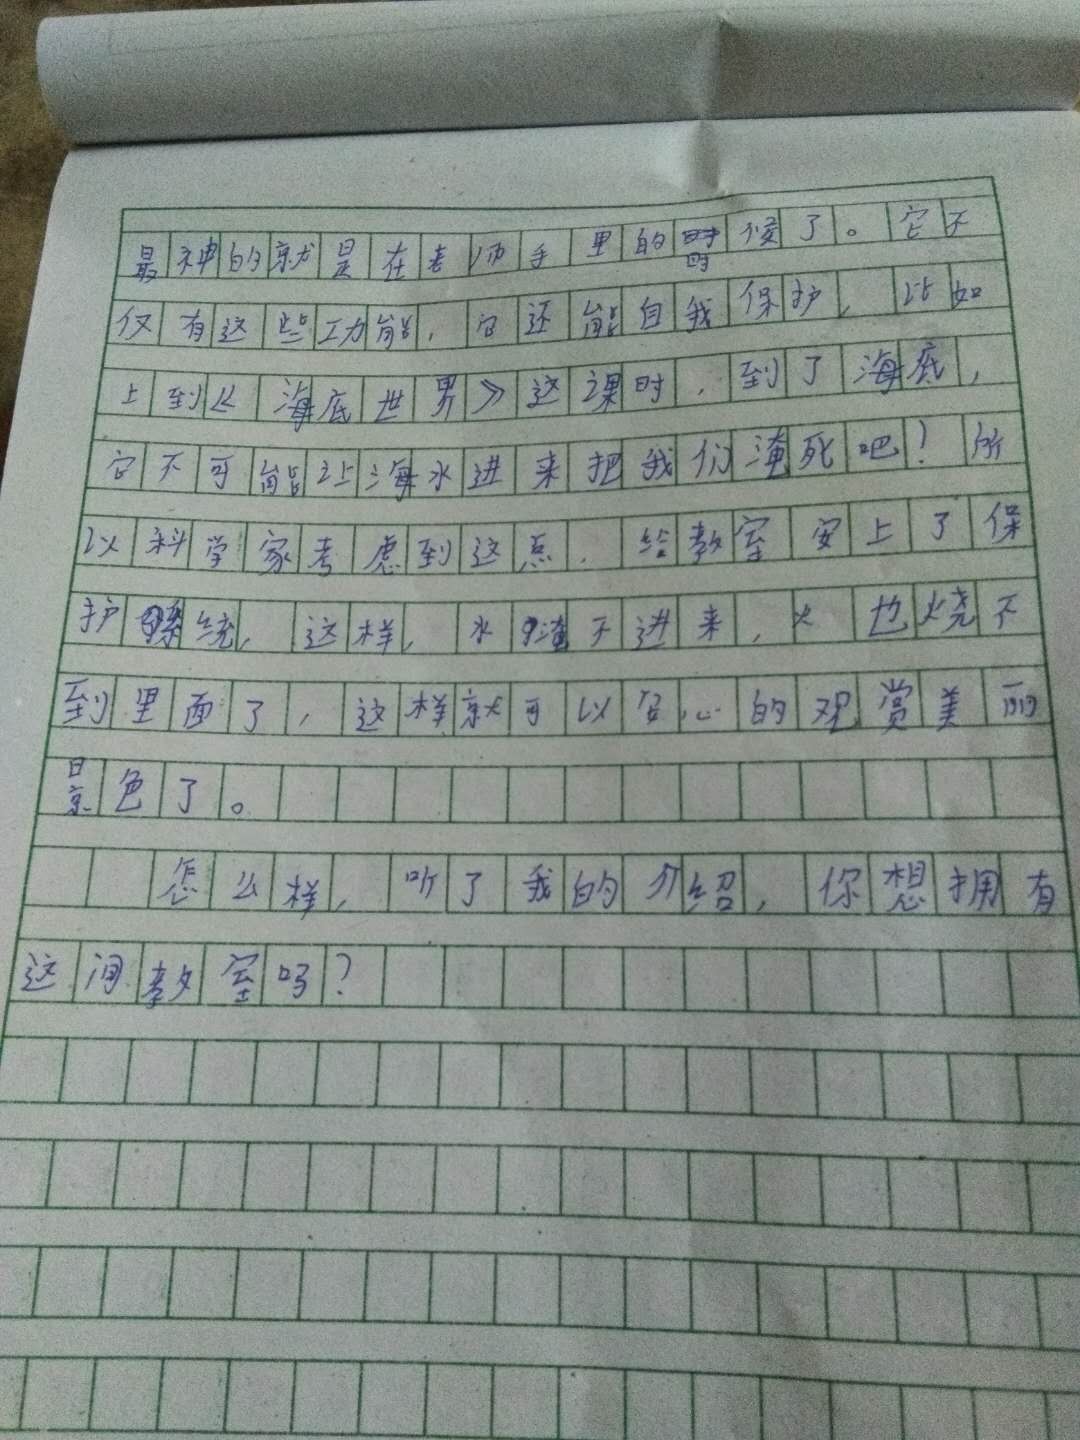 最神的就是在老师手里的时候了。它不
仅有这些功能，它还能自我保护，比如
上到《海底世界》这课时，到了海底，
它不可能让海水进来把我们淹死吧！所
以科学家考虑到这点，给教室安上了保
护系统，这样，水淹不进来，火也烧不
到里面了，这样就可以安心的观赏美丽
景色了。
怎么样，听了我的介绍，你想拥有
这间教室吗？